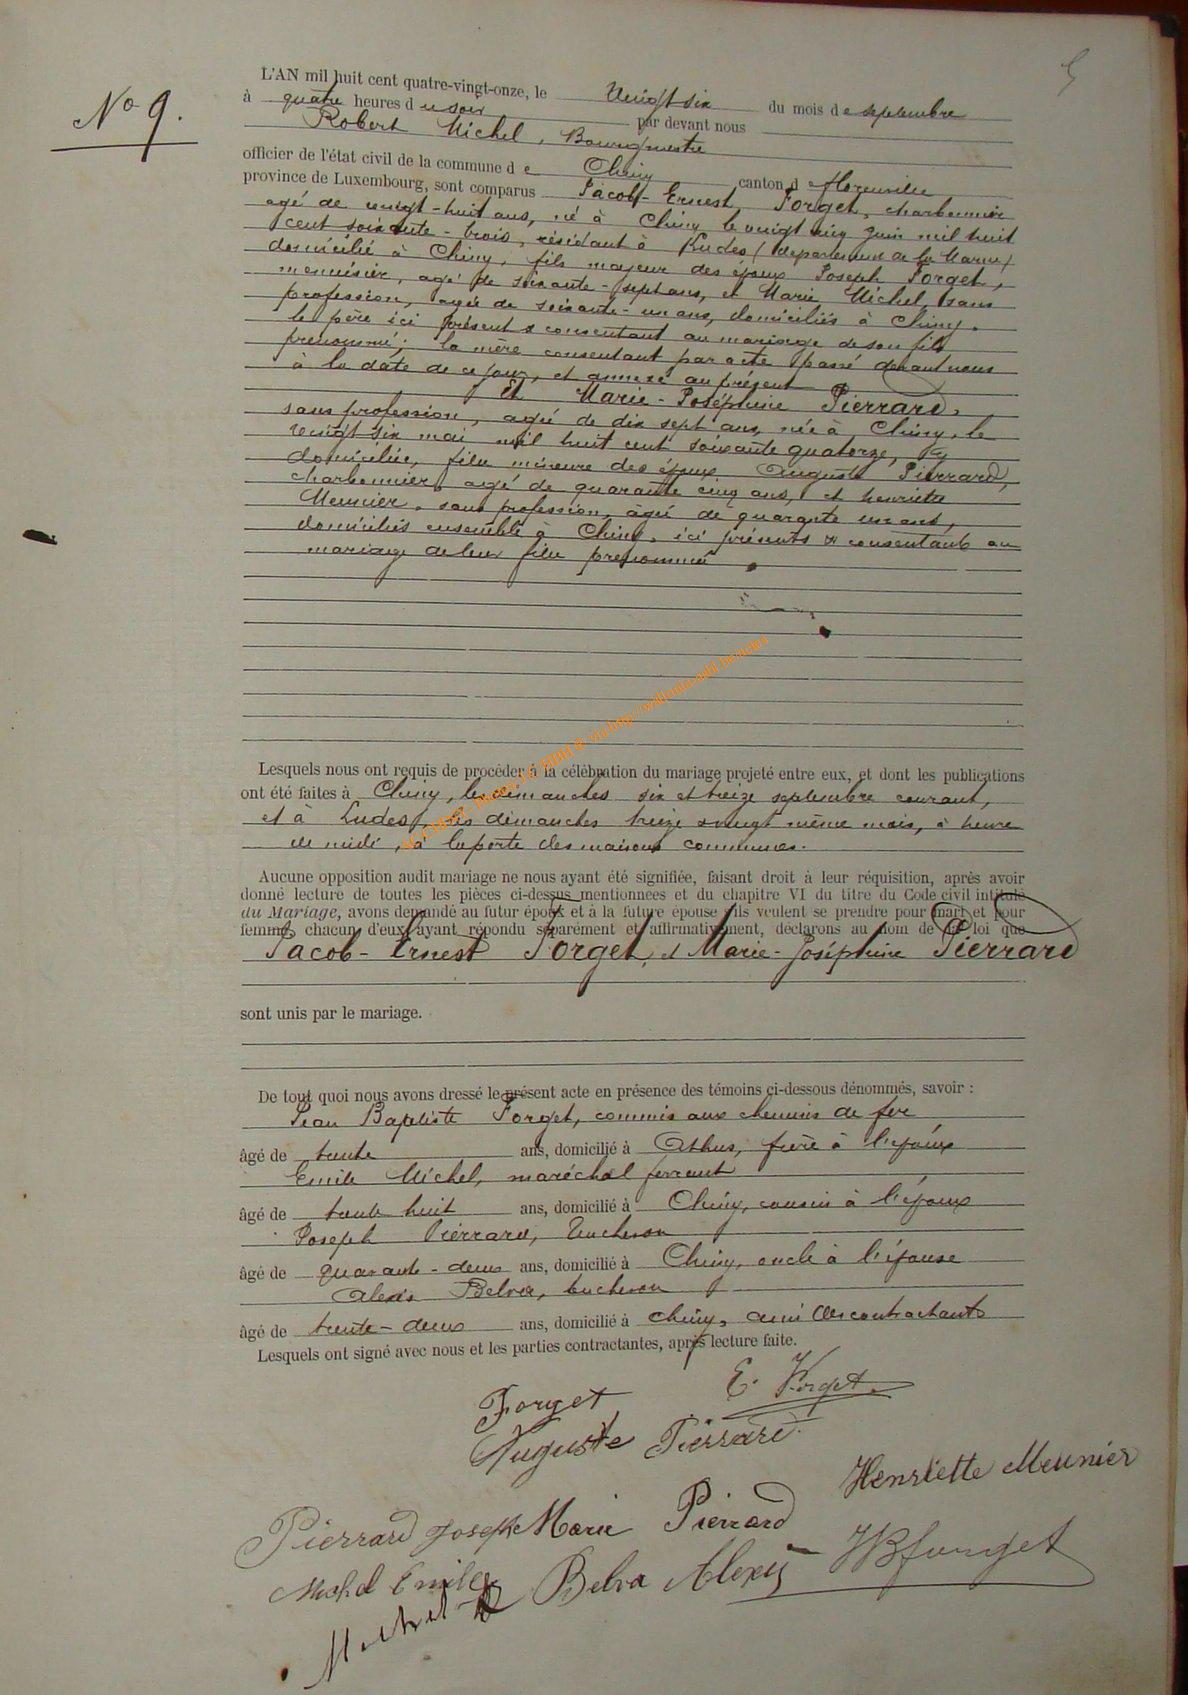 5
N° 9.
L'AN mil huit cent quatre-vingt-onze, le Vingt six du mois de septembre
à quatre heures du soir par devant nous
Robert Michel, Bourgmestre
officier de l'état civil de la commune de Chiny canton d Florenville
province de Luxembourg, sont comparus Jacob-Ernest Forget, charbonnier
agé de vingt-huit ans, né à Chiny le vingt cinq juin mil huit
cent soixante-trois, résidant à Ludes (département de la Marne)
domicilié à Chiny, fils majeur des époux Joseph Forget,
menuisier, agé de soixante-sept ans, et Marie Michel, sans
profession, agée de soixante-un ans, domiciliés à Chiny.
le père ici présent & consentant au mariage de son fils
prénommé; la mère consentant par acte passé devant nous
à la date de ce jour, et annexé au présent
Et Marie-Joséphine Pierrard,
sans profession, agée de dix sept ans, née à Chiny, le
vingt six mai mil huit cent soixante quatorze, y
domiciliée, fille mineure des époux Auguste Pierrard,
charbonnier, agé de quarante cinq ans, et henriette
Meunier, sans profession, âgée de quarante un ans,
domiciliés ensemble à Chiny, ici présents & consentant au
mariage de leur fille prénommée.
Lesquels nous ont requis de procéder à la célébration du mariage projeté entre eux, et dont les publications
ont été faites à Chiny, les dimanches six et treize septembre courant,
et à Ludes, les dimanches treize & vingt même mois, à heure
de midi, à la porte des maisons communes.
Aucune opposition audit mariage ne nous ayant été signifiée, faisant droit à leur réquisition, après avoir
donné lecture de toutes les pièces ci-dessus mentionnées et du chapitre VI du titre du Code civil intitulé
du Mariage, avons demandé au futur époux et à la future épouse s'ils veulent se prendre pour mari et pour
femme, chacun d'eux ayant répondu séparément et affirmativement, déclarons au nom de la loi que
Jacob-Ernest Forget, et Marie-Joséphine Pierrard
sont unis par le mariage.
De tout quoi nous avons dressé le présent acte en présence des témoins ci-dessous dénommés, savoir :
Jean Baptiste Forget, commis aux chemins de fer
âgé de trente ans, domicilié à Athus, frère à l'époux
Emile Michel, maréchal ferrant
âgé de trente huit ans, domicilié à Chiny, cousin à l'époux
Joseph Pierrard, bucheron
âgé de quarante-deux ans, domicilié à Chiny, oncle à l'épouse
Alexis Belva, bucheron
âgé de trente-deux ans, domicilié à Chiny, ami des contractants
Lesquels ont signé avec nous et les parties contractantes, après lecture faite.
Forget E. Forget
Auguste Pierrard
Henriette Meunier
Pierrard Joseph Marie Pierrard
Michel Emile Belva Alexis JBforget
Michel R